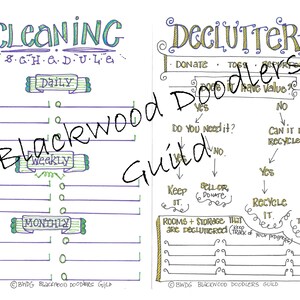 CLEANING
SCHEDULE
DAILY
WEEKLY
MONTHLY
© BWDG BLACKWOOD DOODLERS GUILD
DECLUTTER
DONATE • TOSS •
DOES IT HAVE VALUE?
YES
NO
DO YOU NEED IT?
YES
NO.
KEEP
IT.
SELL OR
DONATE
CAN IT B
RECYCLE
YES
RECYCLE
IT.
ROOMS + STORAGE THAT
ARE DECLUTTERED
© BWDG BLACKWOOD DOODLERS GUILD
Blackwood Doodlers
Guild